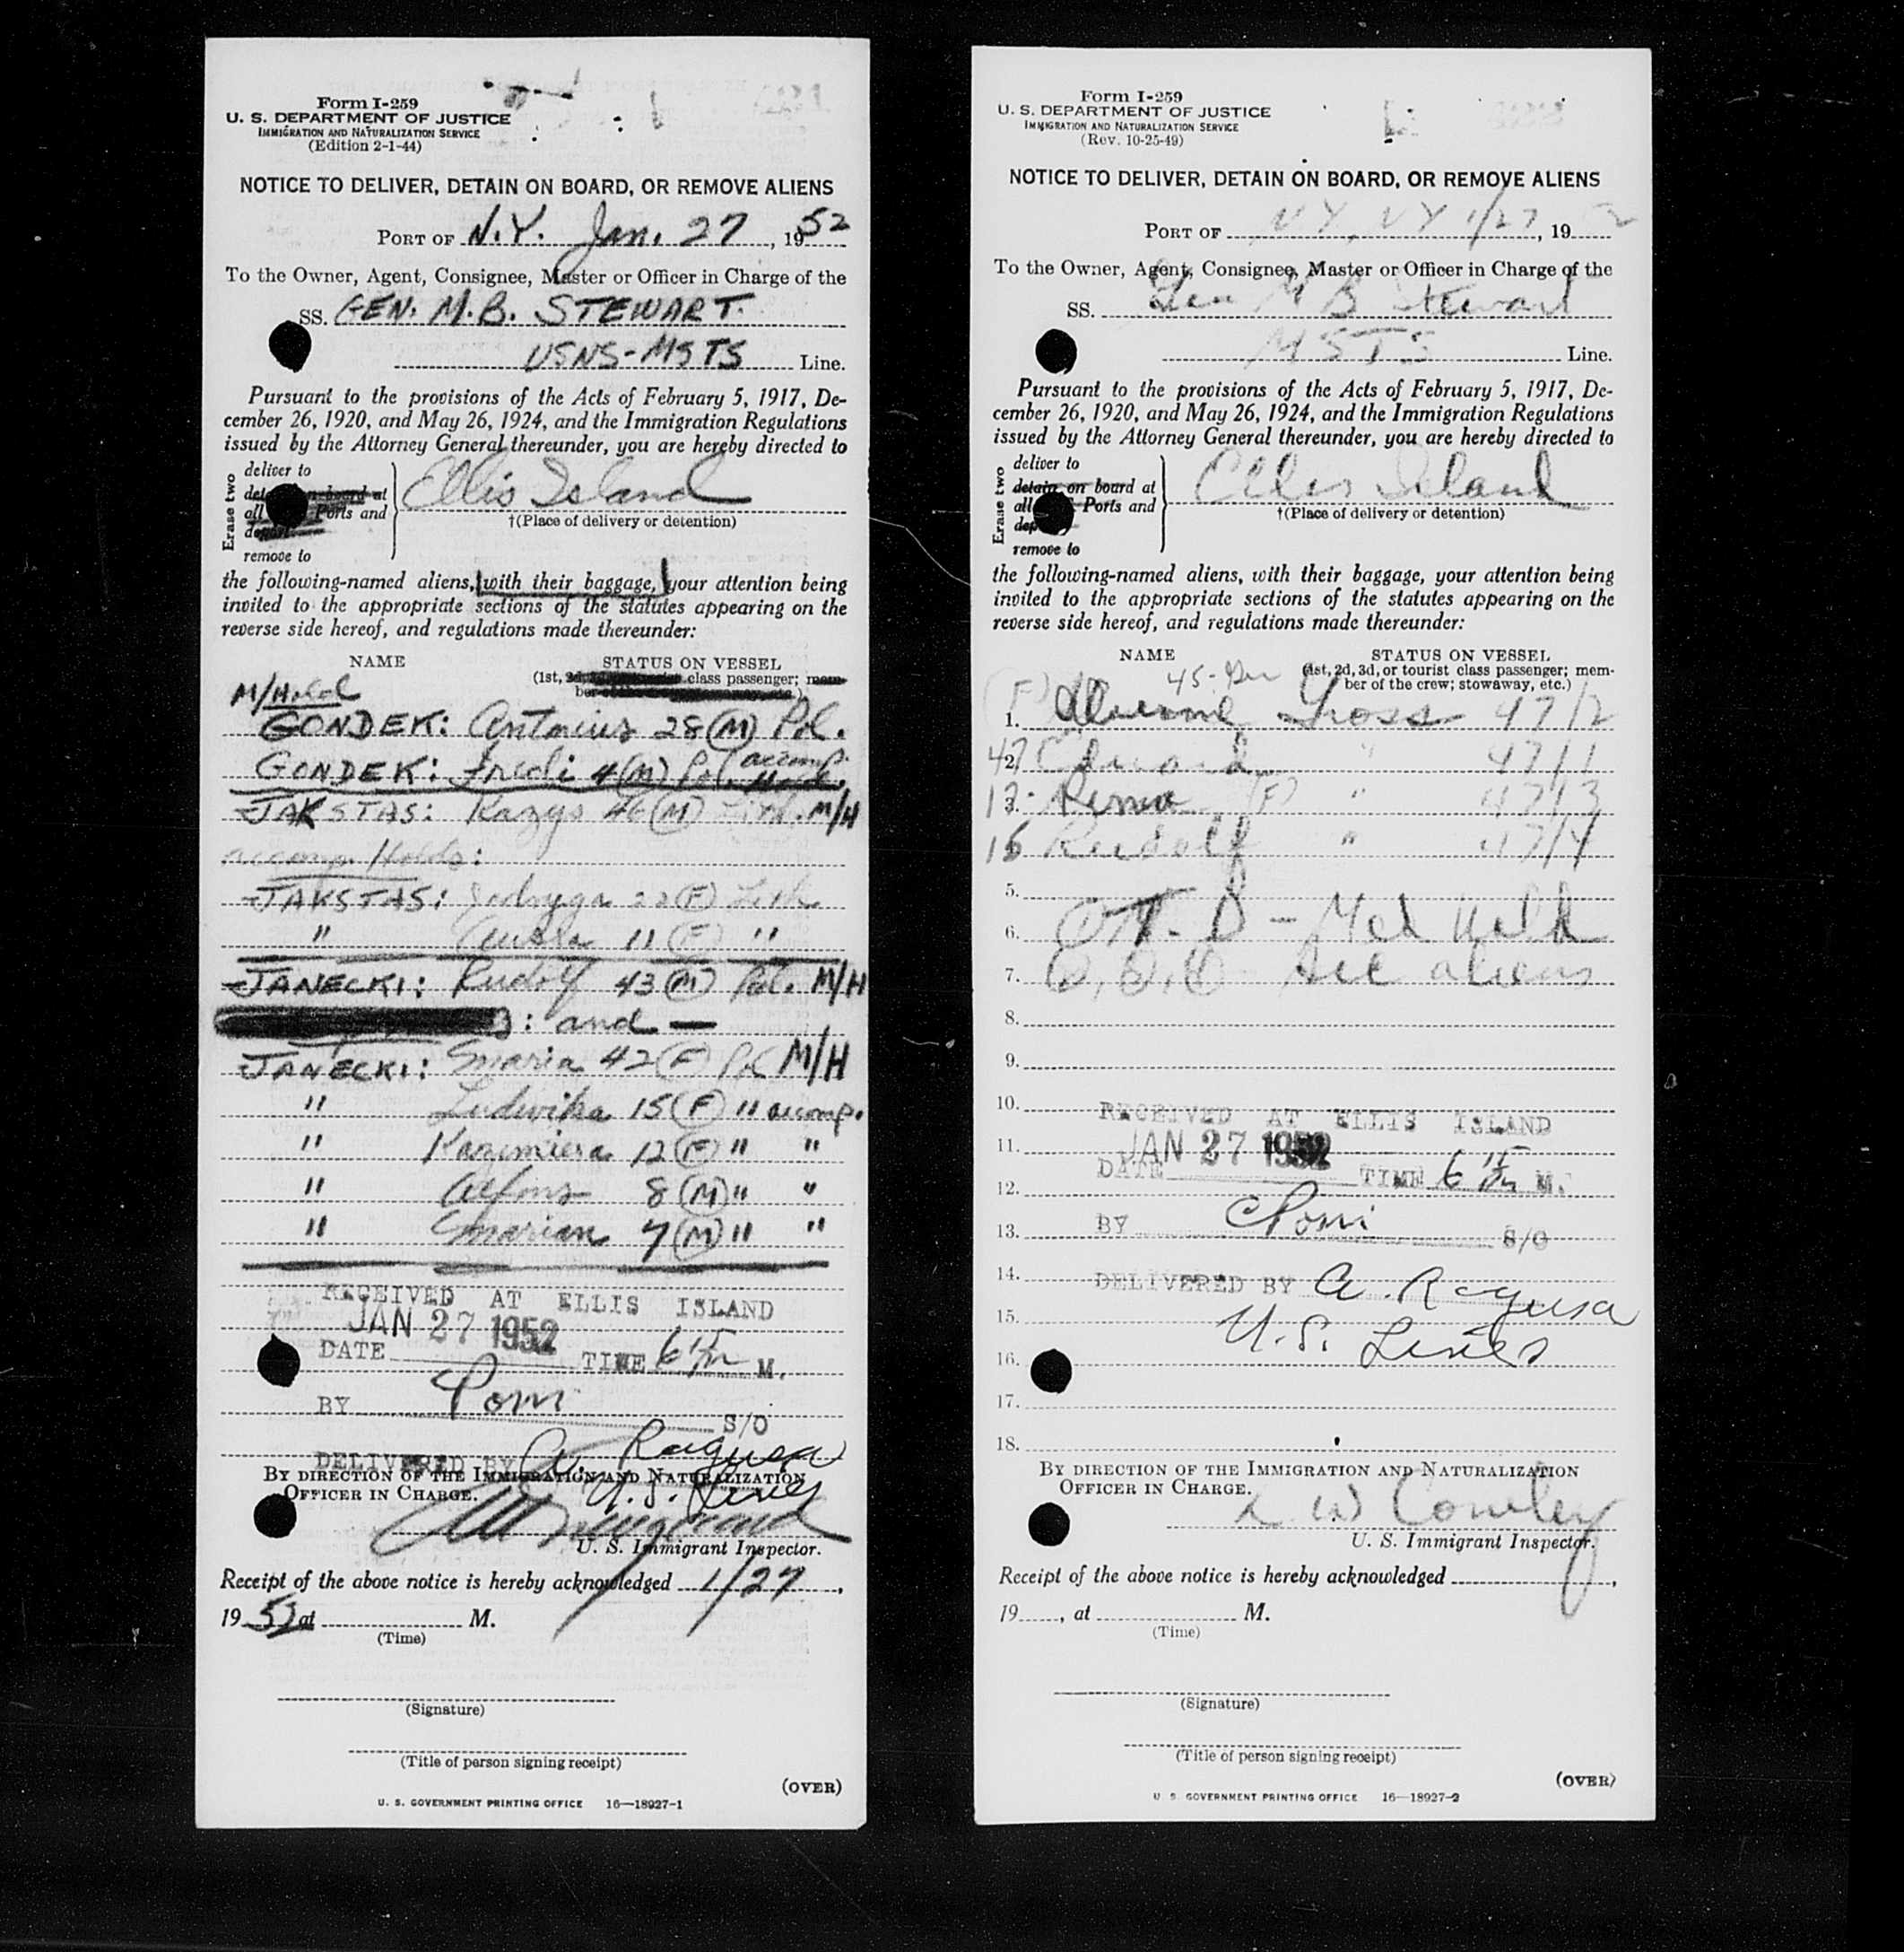 Form I-259
U. S. DEPARTMENT OF JUSTICE
IMMIGRATION AND NATURALIZATION SERVICE
(Edition 2-1-44)
NOTICE TO DELIVER, DETAIN ON BOARD, OR REMOVE ALIENS
PORT OF N.Y. Jan. 27, 1952
To the Owner, Agent, Consignee, Master or Officer in Charge of the
SS. GEN. M.B. STEWART.
USNS-MSTS Line.
Pursuant to the provisions of the Acts of February 5, 1917, De-
cember 26, 1920, and May 26, 1924, and the Immigration Regulations
issued by the Attorney General thereunder, you are hereby directed to
Erase two
deliver to
on board at
all Ports and
remove to
Ellis Island
†(Place of delivery or detention)
the following-named aliens, with their baggage, your attention being
invited to the appropriate sections of the statutes appearing on the
reverse side hereof, and regulations made thereunder:
NAME STATUS ON VESSEL
(1st, 2d, class passenger; mem-
M/Hold
GONDEK: Antonius 28 (M) Pol.
GONDEK: Fredi 4 (M) Pol. accomp. Hold.
JAKSTAS: Kazys 46 (M) Lith. M/H
accomp. Holds:
JAKSTAS: 22 (F) Lith
" 11 (F) "
JANECKI: Rudolf 43 (M) Pol. M/H
: and —
JANECKI: Maria 42 (F) Pol M/H
" Ludwika 15 (F) " accomp.
" Kazimiera 12 (F) " "
" Alfons 8 (M) " "
" Marian 7 (M) " "
RECEIVED AT ELLIS ISLAND
JAN 27 1952
DATE TIME 6 15 M.
BY S/O
DELIVERED BY A. Ragusa
U.S. Lines
BY DIRECTION OF THE IMMIGRATION AND NATURALIZATION
OFFICER IN CHARGE.
U. S. Immigrant Inspector.
Receipt of the above notice is hereby acknowledged 1/27,
1952 at M.
(Time)
(Signature)
(Title of person signing receipt)
(OVER)
U. S. GOVERNMENT PRINTING OFFICE 16—18927-1
Form I-259
U. S. DEPARTMENT OF JUSTICE
IMMIGRATION AND NATURALIZATION SERVICE
(Rev. 10-25-49)
NOTICE TO DELIVER, DETAIN ON BOARD, OR REMOVE ALIENS
PORT OF NY, NY 1/27, 1952
To the Owner, Agent, Consignee, Master or Officer in Charge of the
SS. Gen M B Stewart
MSTS Line.
Pursuant to the provisions of the Acts of February 5, 1917, De-
cember 26, 1920, and May 26, 1924, and the Immigration Regulations
issued by the Attorney General thereunder, you are hereby directed to
Erase two
deliver to
detain on board at
all Ports and
remove to
Ellis Island
†(Place of delivery or detention)
the following-named aliens, with their baggage, your attention being
invited to the appropriate sections of the statutes appearing on the
reverse side hereof, and regulations made thereunder:
NAME STATUS ON VESSEL
(1st, 2d, 3d, or tourist class passenger; mem-
ber of the crew; stowaway, etc.)
45-Ger
1. (F) Gross 47/2
47 2. Edward " 47/1
3. (F) " 47/3
16 Rudolf " 47/4
5.
6. T. D - Med Hold
7. All aliens
8.
9.
10.
RECEIVED AT ELLIS ISLAND
11. JAN 27 1952
DATE TIME 6 15 M.
12.
13. BY S/O
14. DELIVERED BY A. Ragusa
15. U.S. Lines
16.
17.
18.
BY DIRECTION OF THE IMMIGRATION AND NATURALIZATION
OFFICER IN CHARGE.
L W Conley
U. S. Immigrant Inspector.
Receipt of the above notice is hereby acknowledged ,
19 , at M.
(Time)
(Signature)
(Title of person signing receipt)
(OVER)
U. S. GOVERNMENT PRINTING OFFICE 16—18927-2